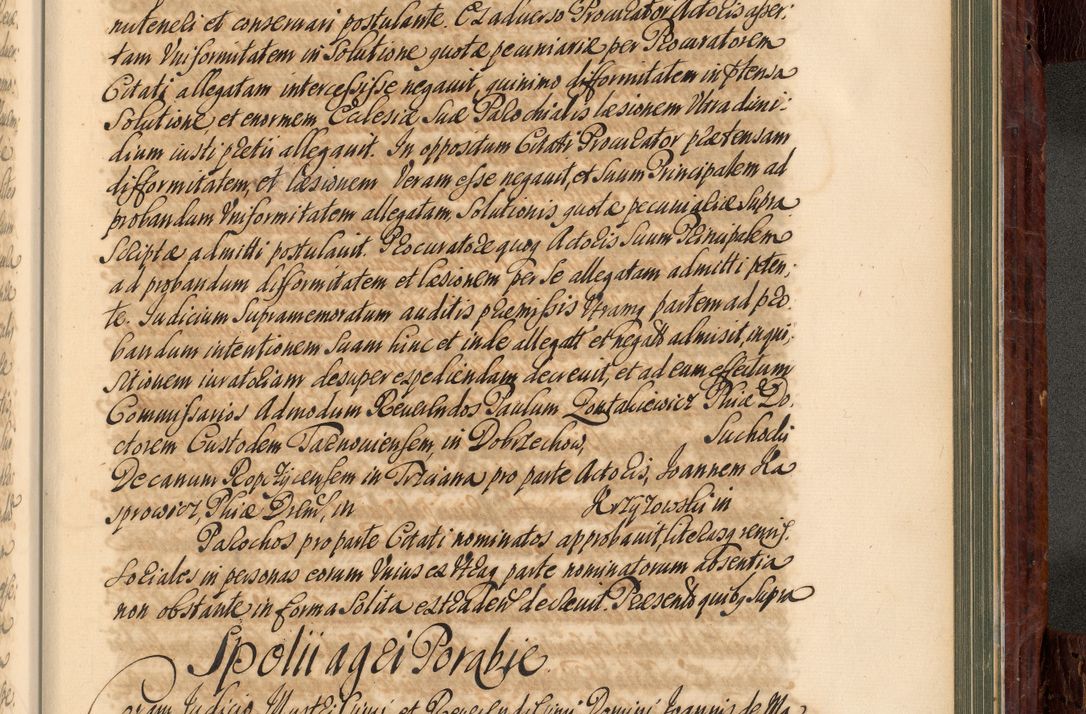 nuteneri et conseruari postulante. Et aduerso Procurator Actoris asser-
tam Vniformitatem in Solutione quotæ pecuniariæ per Procuratorem
Citati allegatam intercessisse negauit, quinimo difformitatem in ptensa
Solutione, et enormem Eclesiæ Suæ Parochialis læsionem Vltra dimi:
dium iusti pretii allegauit. In oppositum Citati Procurator prætensam
difformitatem, et læsionem Veram esse negauit, et Suum Principalem ad
probandum Vniformitatem allegatam Solutionis quotæ pecuniariæ Supra
Scriptæ admitti postulauit. Procuratore quoq Actoris Suum Principalem
ad probandum difformitatem et læsionem per Se allegatam admitti peten,
te. Iudicium Supramemoratum auditis præmissis Vtramq partem ad pro
bandum intentionem Suam hinc et inde allegatt et negatt admisit, inqui,
sitionem iuratoriam desuper expediendam decreuit, et ad eam effectum
Commissarios Admodum Reuerendos Paulum Zontakiewicz Phiæ Do
ctorem Custodem Tarnouiensem, in Dobrzechow, Suchocki
Decanum Ropczycensem in Trzciana pro parte Actoris, Joannem Ka
sprowicz, Phiæ Drem, in Krzyzowski in
Parochos pro parte Citati nominatos approbauit literasq remis.
soriales in personas eorum Vnius ex Vtraq parte nominatorum absentia
non obstante in forma Solita extraden decreuit. Præsent quibq Supra
Spolii agri Porabie
Coram Judicio Illustrissimi et Reuerendissimi Domini Joannis de Ma